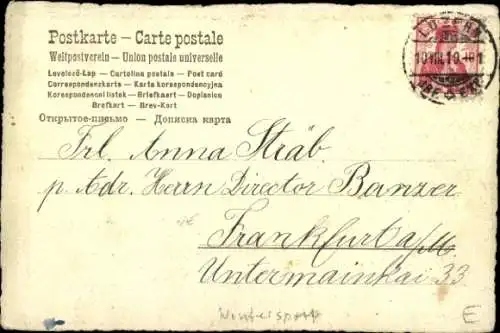 Postkarte – Carte postale
Weltpostverein – Union postale universelle
Levelező-Lap – Cartolina postale – Post card
Correspondenzkarte – Karta korespondencyjna
Korespondenční lístek – Briefkaart – Dopisnice
Brefkort – Brev-Kort
Открытое-письмо – Дописна карта
LUZERN
10.VIII.10
Frl. Anna Sträb.
p. Adr. Herrn Director Banzer
Frankfurt a/M.
Untermainkai 33
Wintersport
E